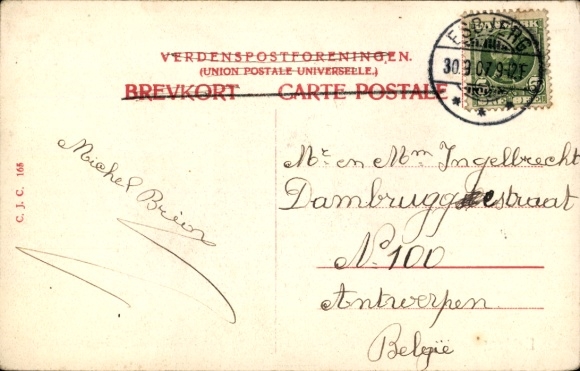 VERDENSPOSTFORENINGEN.
(UNION POSTALE UNIVERSELLE.)
BREVKORT CARTE POSTALE
ESBJERG
30.9.07.9-12F
C. J. C. 165
Michel
Mr. en Mm Ingelbrecht
Dambruggestraat
No. 100
Antwerpen
België